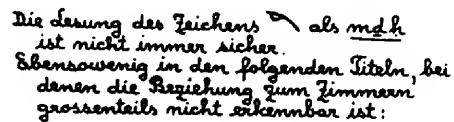 Die Lesung des Zeichens als mdḥ
ist nicht immer sicher.
Ebensowenig in den folgenden Titeln, bei
denen die Beziehung zum Zimmern
grossenteils nicht erkennbar ist: